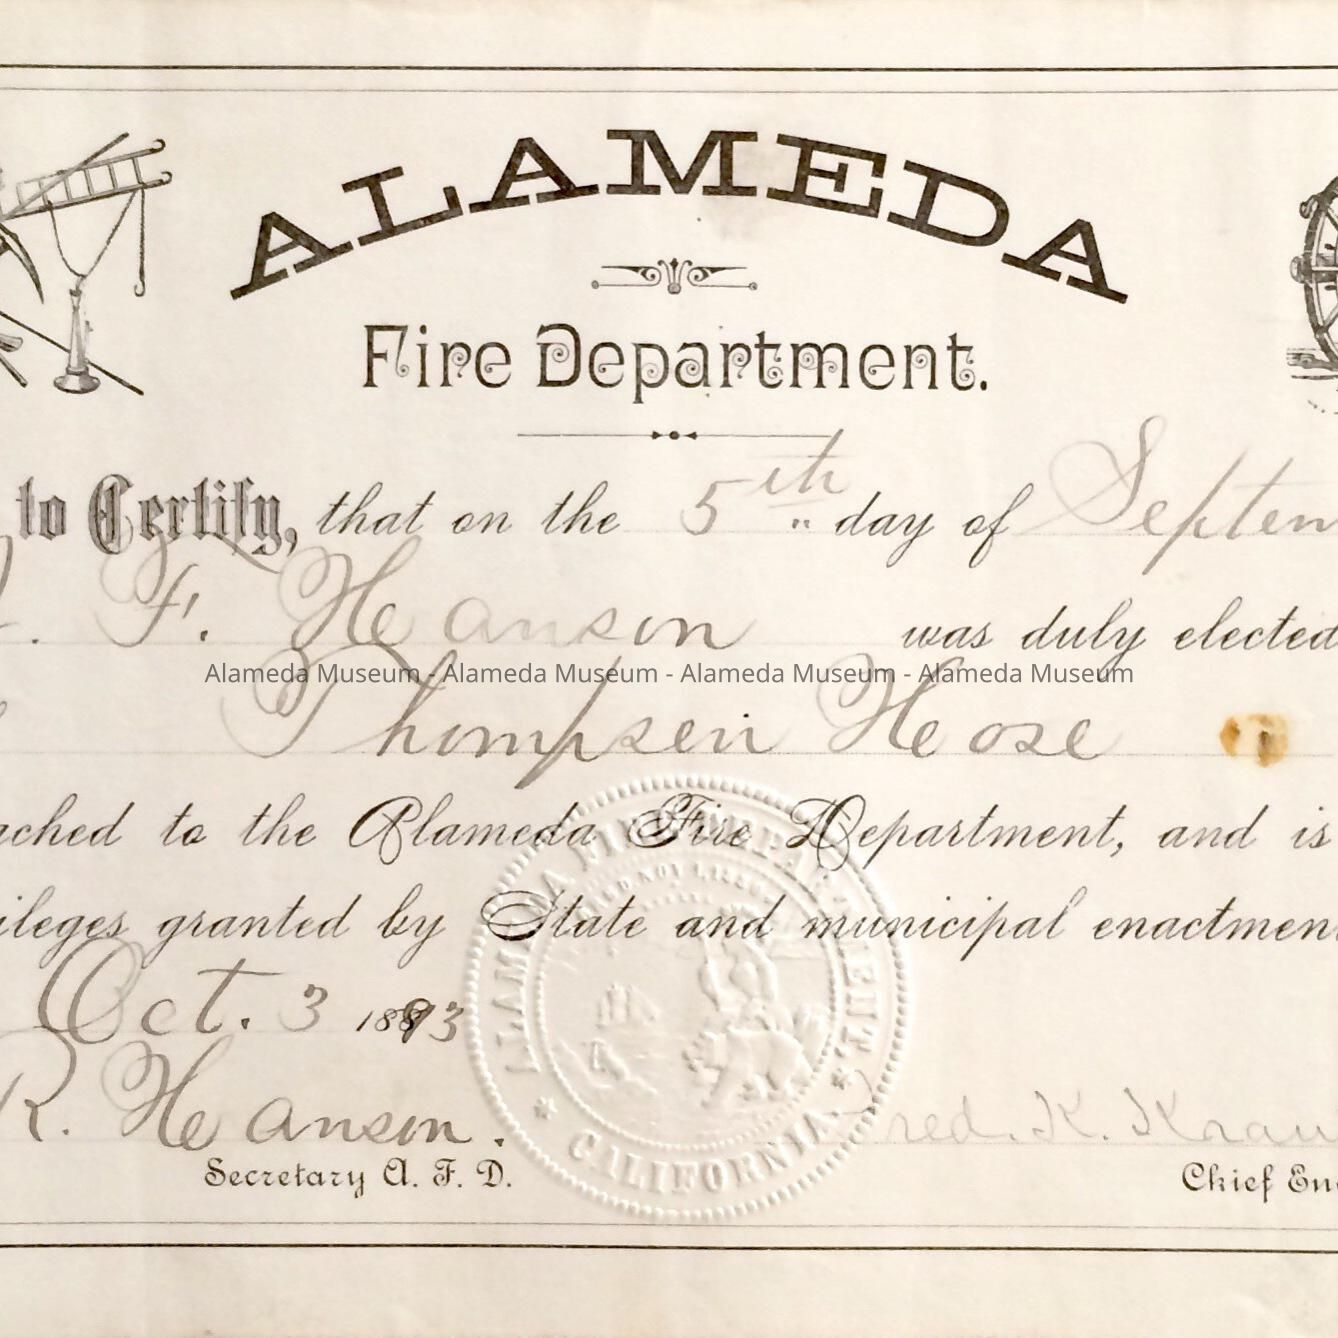 ALAMEDA
Fire Department.
to Certify, that on the 5th day of Septem
F. Hanson was duly elected
Alameda Museum - Alameda Museum - Alameda Museum - Alameda Museum
Thompson Hose
ached to the Alameda Fire Department, and is
ileges granted by State and municipal enactmen
Oct. 3 1893
R. Hanson.
Fred. K. Krau
Secretary A. F. D.
Chief En
ALAMEDA FIRE DEPARTMENT.
CALIFORNIA